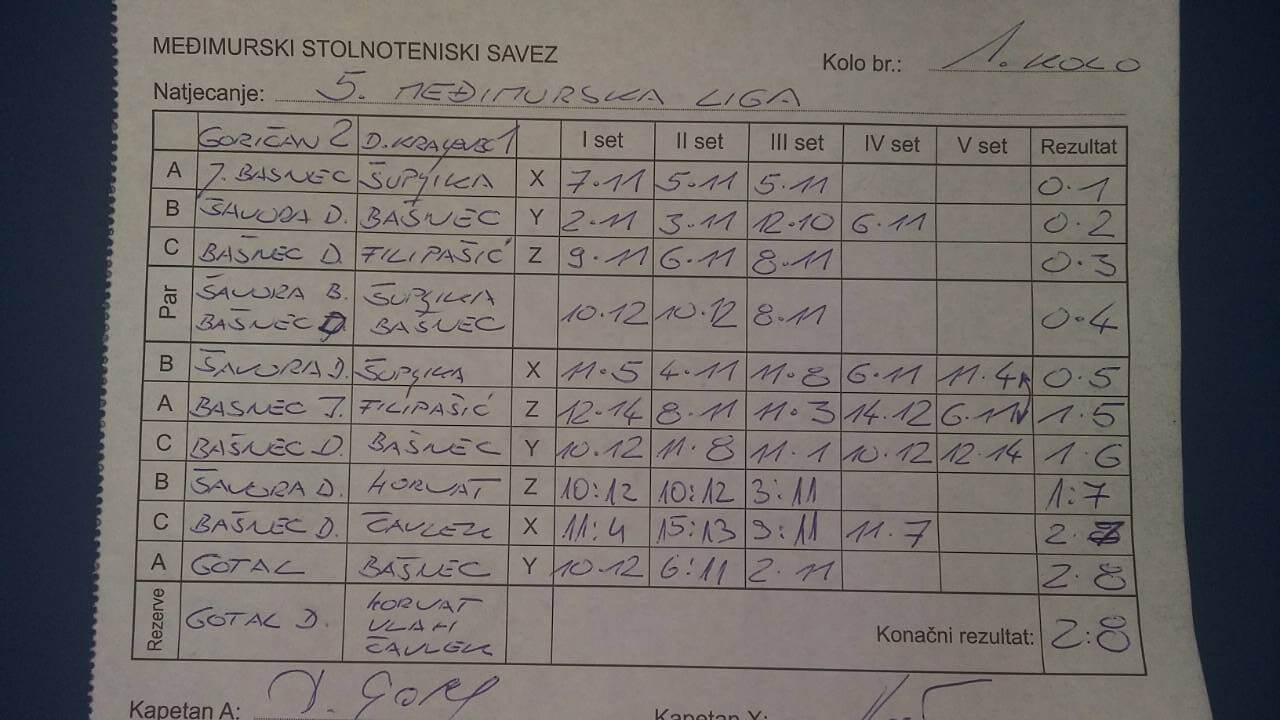 MEĐIMURSKI STOLNOTENISKI SAVEZ
Kolo br.: 1. KOLO
Natjecanje: 5. MEĐIMURSKA LIGA
GORIČAN 2 D. KRALJEVEC 1 I set II set III set IV set V set Rezultat
A J. BASNEC ŠUPLJIKA X 7·11 5·11 5·11 0·1
B ŠAVORA D. BAŠNEC Y 2·11 3·11 12·10 6·11 0·2
C BAŠNEC D. FILIPAŠIĆ Z 9·11 6·11 8·11 0·3
Par ŠAVORA B. ŠUPLJIKA
BAŠNEC D. BAŠNEC 10·12 10·12 8·11 0·4
B ŠAVORA D. ŠUPLJIKA X 11·5 4·11 11·8 6·11 11·4 0·5
A BASNEC J. FILIPAŠIĆ Z 12·14 8·11 11·3 14·12 6·11 1·5
C BAŠNEC D. BAŠNEC Y 10·12 11·8 11·1 10·12 12·14 1·6
B ŠAVORA D. HORVAT Z 10:12 10:12 3:11 1:7
C BAŠNEC D. ČAVLEK X 11:4 15:13 9:11 11·7 2·7
A GOTAL BAŠNEC Y 10·12 6:11 2·11 2·8
Rezerve GOTAL D. HORVAT
VLAH
ČAVLEK
Konačni rezultat: 2:8
Kapetan A:
Kapetan Y: